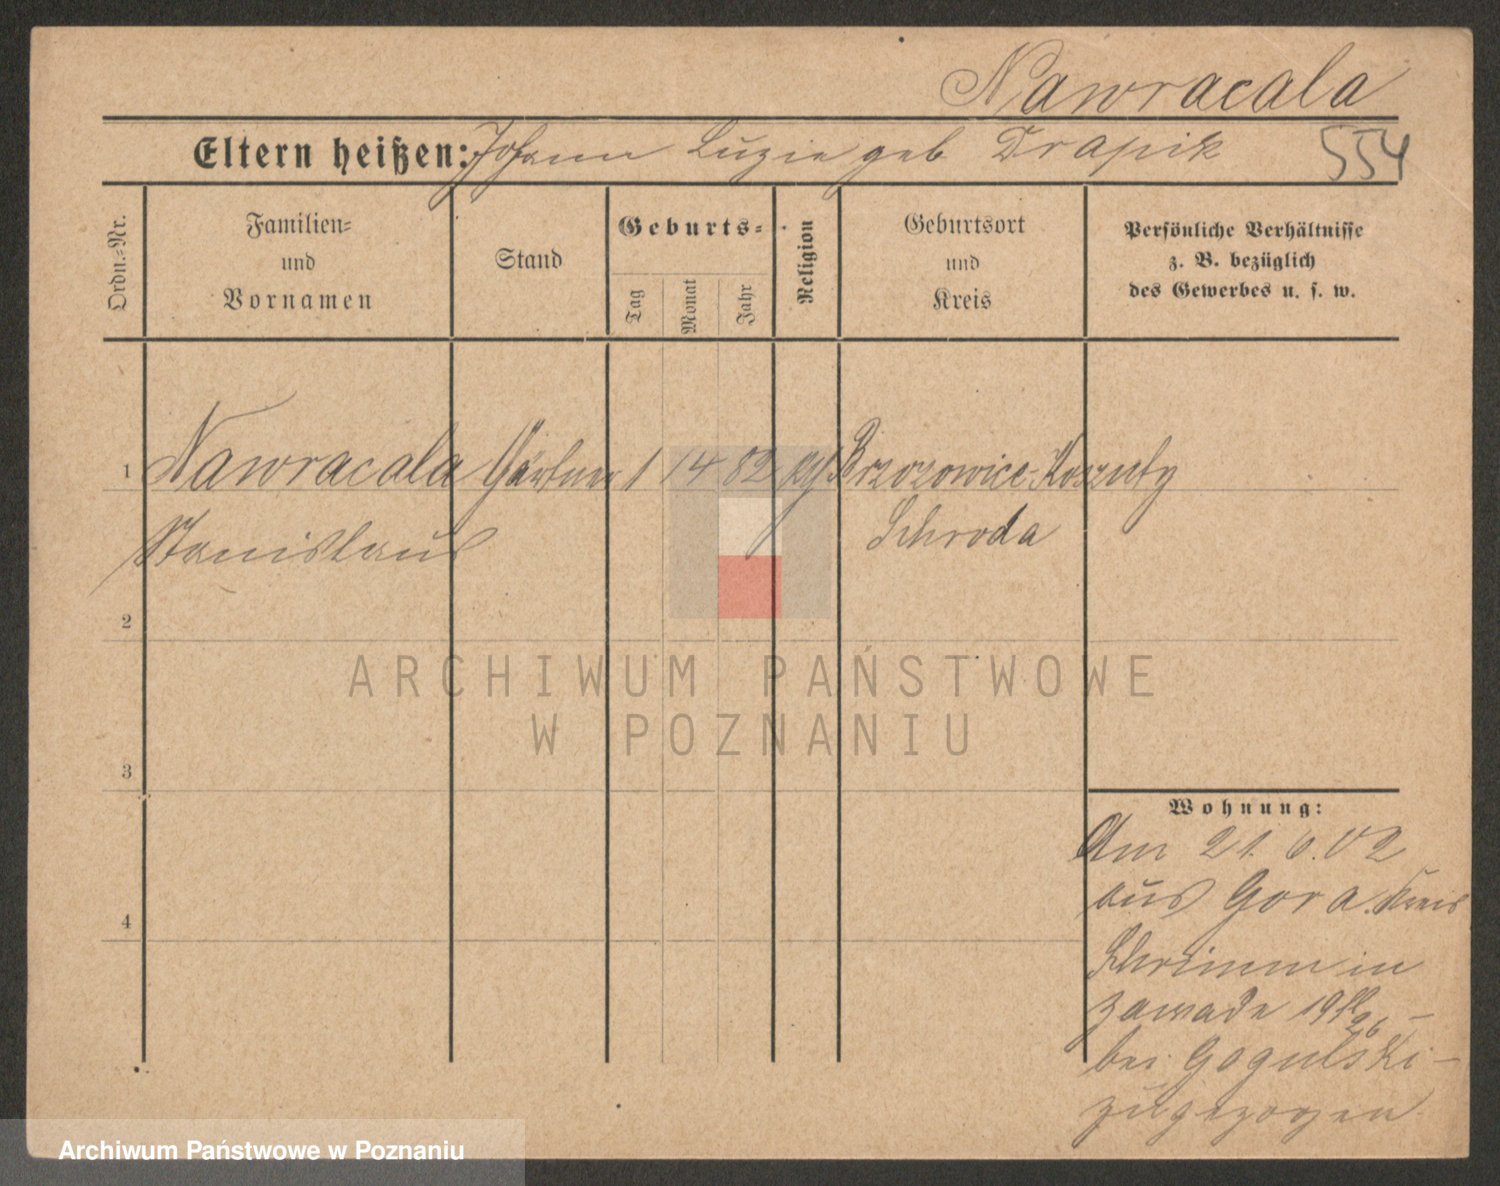 Nawracala
Eltern heißen: Johann Luzie geb Drapik
554
Ordn.-Nr.
Familien-
und
Vornamen
Stand
Geburts-
Tag
Monat
Jahr
Religion
Geburtsort
und
Kreis
Persönliche Verhältnisse
z. B. bezüglich
des Gewerbes u. s. w.
1 Nawracala Gärtner 82 Brzozowice-Koszuty
Stanislaus Schroda
2
ARCHIWUM PAŃSTWOWE
W POZNANIU
3
4
Wohnung:
Am 21. 6. 02
aus Gora. Kreis
Schrimm in
Zawade
bei Gogulski
zugezogen
Archiwum Państwowe w Poznaniu